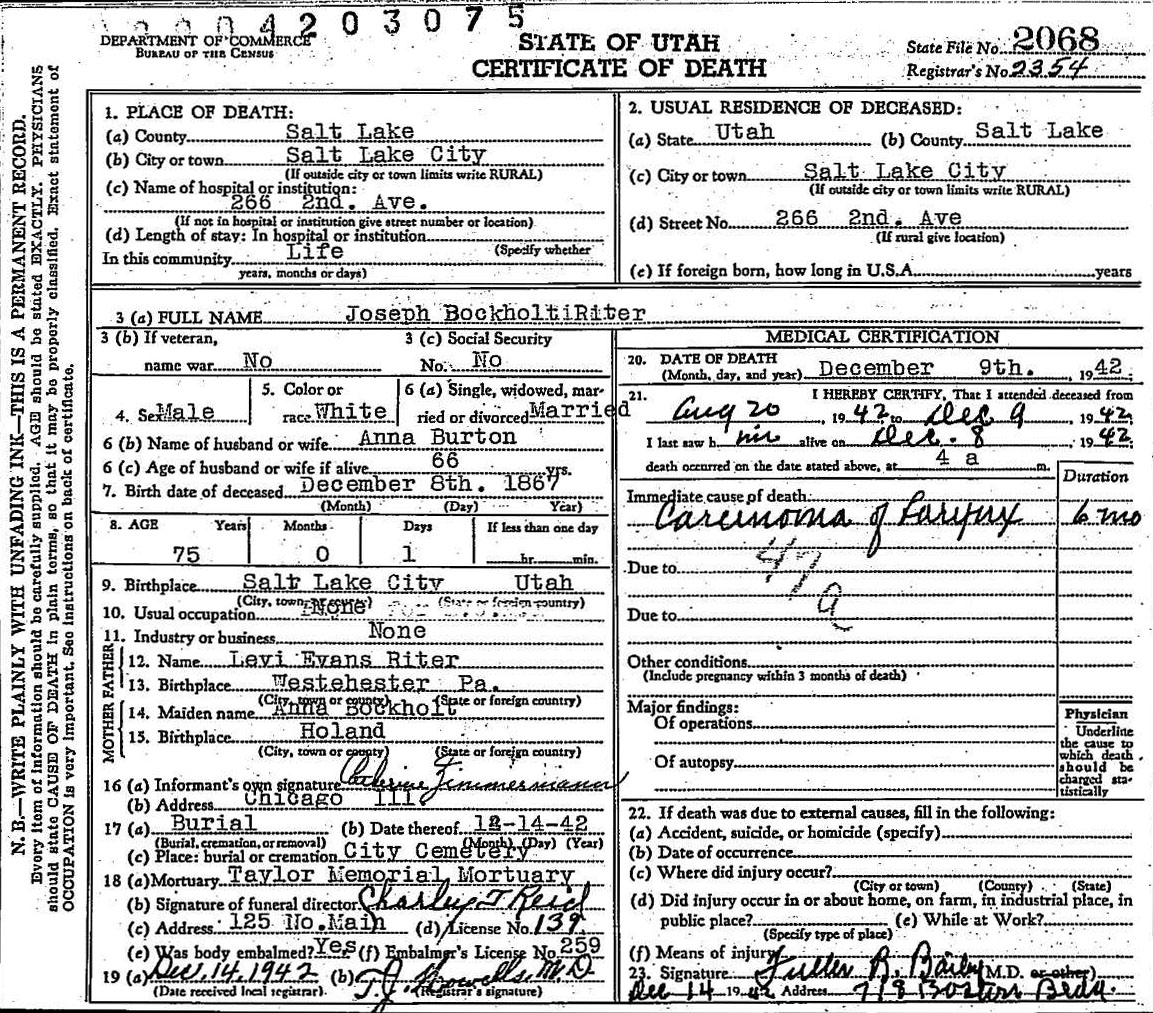 0004203075
DEPARTMENT OF COMMERCE
BUREAU OF THE CENSUS
STATE OF UTAH
CERTIFICATE OF DEATH
State File No. 2068
Registrar's No. 2354
N. B.—WRITE PLAINLY WITH UNFADING INK—THIS IS A PERMANENT RECORD.
Every item of information should be carefully supplied. AGE should be stated EXACTLY. PHYSICIANS
should state CAUSE OF DEATH in plain terms, so that it may be properly classified. Exact statement of
OCCUPATION is very important. See instructions on back of certificate.
1. PLACE OF DEATH:
(a) County Salt Lake
(b) City or town Salt Lake City
(If outside city or town limits write RURAL)
(c) Name of hospital or institution:
266 2nd. Ave.
(If not in hospital or institution give street number or location)
(d) Length of stay: In hospital or institution
(Specify whether
In this community Life
years, months or days)
2. USUAL RESIDENCE OF DECEASED:
(a) State Utah (b) County Salt Lake
(c) City or town Salt Lake City
(If outside city or town limits write RURAL)
(d) Street No. 266 2nd. Ave
(If rural give location)
(e) If foreign born, how long in U.S.A. years
3 (a) FULL NAME Joseph BockholtiRiter
3 (b) If veteran, 3 (c) Social Security
name war No No. No
4. Sex Male 5. Color or race White 6 (a) Single, widowed, married or divorced Married
6 (b) Name of husband or wife Anna Burton
6 (c) Age of husband or wife if alive 66 yrs.
7. Birth date of deceased December 8th. 1867
(Month) (Day) Year)
8. AGE Years Months Days If less than one day
75 0 1 hr. min.
9. Birthplace Salt Lake City Utah
(City, town or county) (State or foreign country)
10. Usual occupation None
11. Industry or business None
FATHER
12. Name Levi Evans Riter
13. Birthplace Westehester Pa.
(City, town or county) (State or foreign country)
MOTHER
14. Maiden name Anna Bockholt
15. Birthplace Holand
(City, town or county) (State or foreign country)
16 (a) Informant's own signature Zimmermann
(b) Address Chicago Ill
17 (a) Burial (b) Date thereof 12-14-42
(Burial, cremation, or removal) (Month) (Day) (Year)
(c) Place: burial or cremation City Cemetery
18 (a) Mortuary Taylor Memorial Mortuary
(b) Signature of funeral director Charley T Reid
(c) Address 125 No. Main (d) License No. 139
(e) Was body embalmed? Yes (f) Embalmer's License No. 259
19 (a) Dec. 14, 1942 (b) T.J. Howells, M.D.
(Date received local registrar). (Registrar's signature)
MEDICAL CERTIFICATION
20. DATE OF DEATH
(Month, day, and year) December 9th. 1942
21. I HEREBY CERTIFY, That I attended deceased from
Aug 20, 1942 to Dec 9 1942
I last saw h im alive on Dec. 8 1942
death occurred on the date stated above, at 4 a m.
Duration
Immediate cause of death:
Carcinoma of Larynx 6 mo
Due to 47
Due to a
Other conditions
(Include pregnancy within 3 months of death)
Major findings:
Of operations
Of autopsy
Physician
Underline
the cause to
which death
should be
charged sta-
tistically
22. If death was due to external causes, fill in the following:
(a) Accident, suicide, or homicide (specify)
(b) Date of occurrence
(c) Where did injury occur?
(City or town) (County) (State)
(d) Did injury occur in or about home, on farm, in industrial place, in
public place? (e) While at Work?
(Specify type of place)
(f) Means of injury
23. Signature Fuller B. Baily M.D. or other)
Dec 14 1942 Address 718 Boston Bldg.